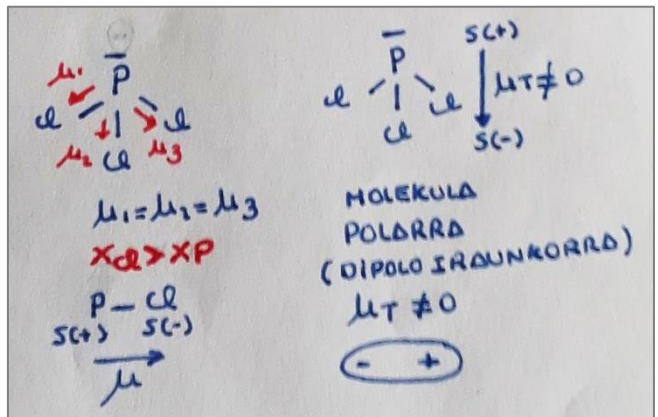 P
μ₁
Cl Cl
μ₂ Cl μ₃
μ₁ = μ₂ = μ₃
XCl > XP
P – Cl
δ(+) δ(-)
μ
P
Cl Cl
Cl
δ(+)
μT ≠ 0
δ(-)
MOLEKULA
POLARRA
(DIPOLO IRAUNKORRA)
μT ≠ 0
- +